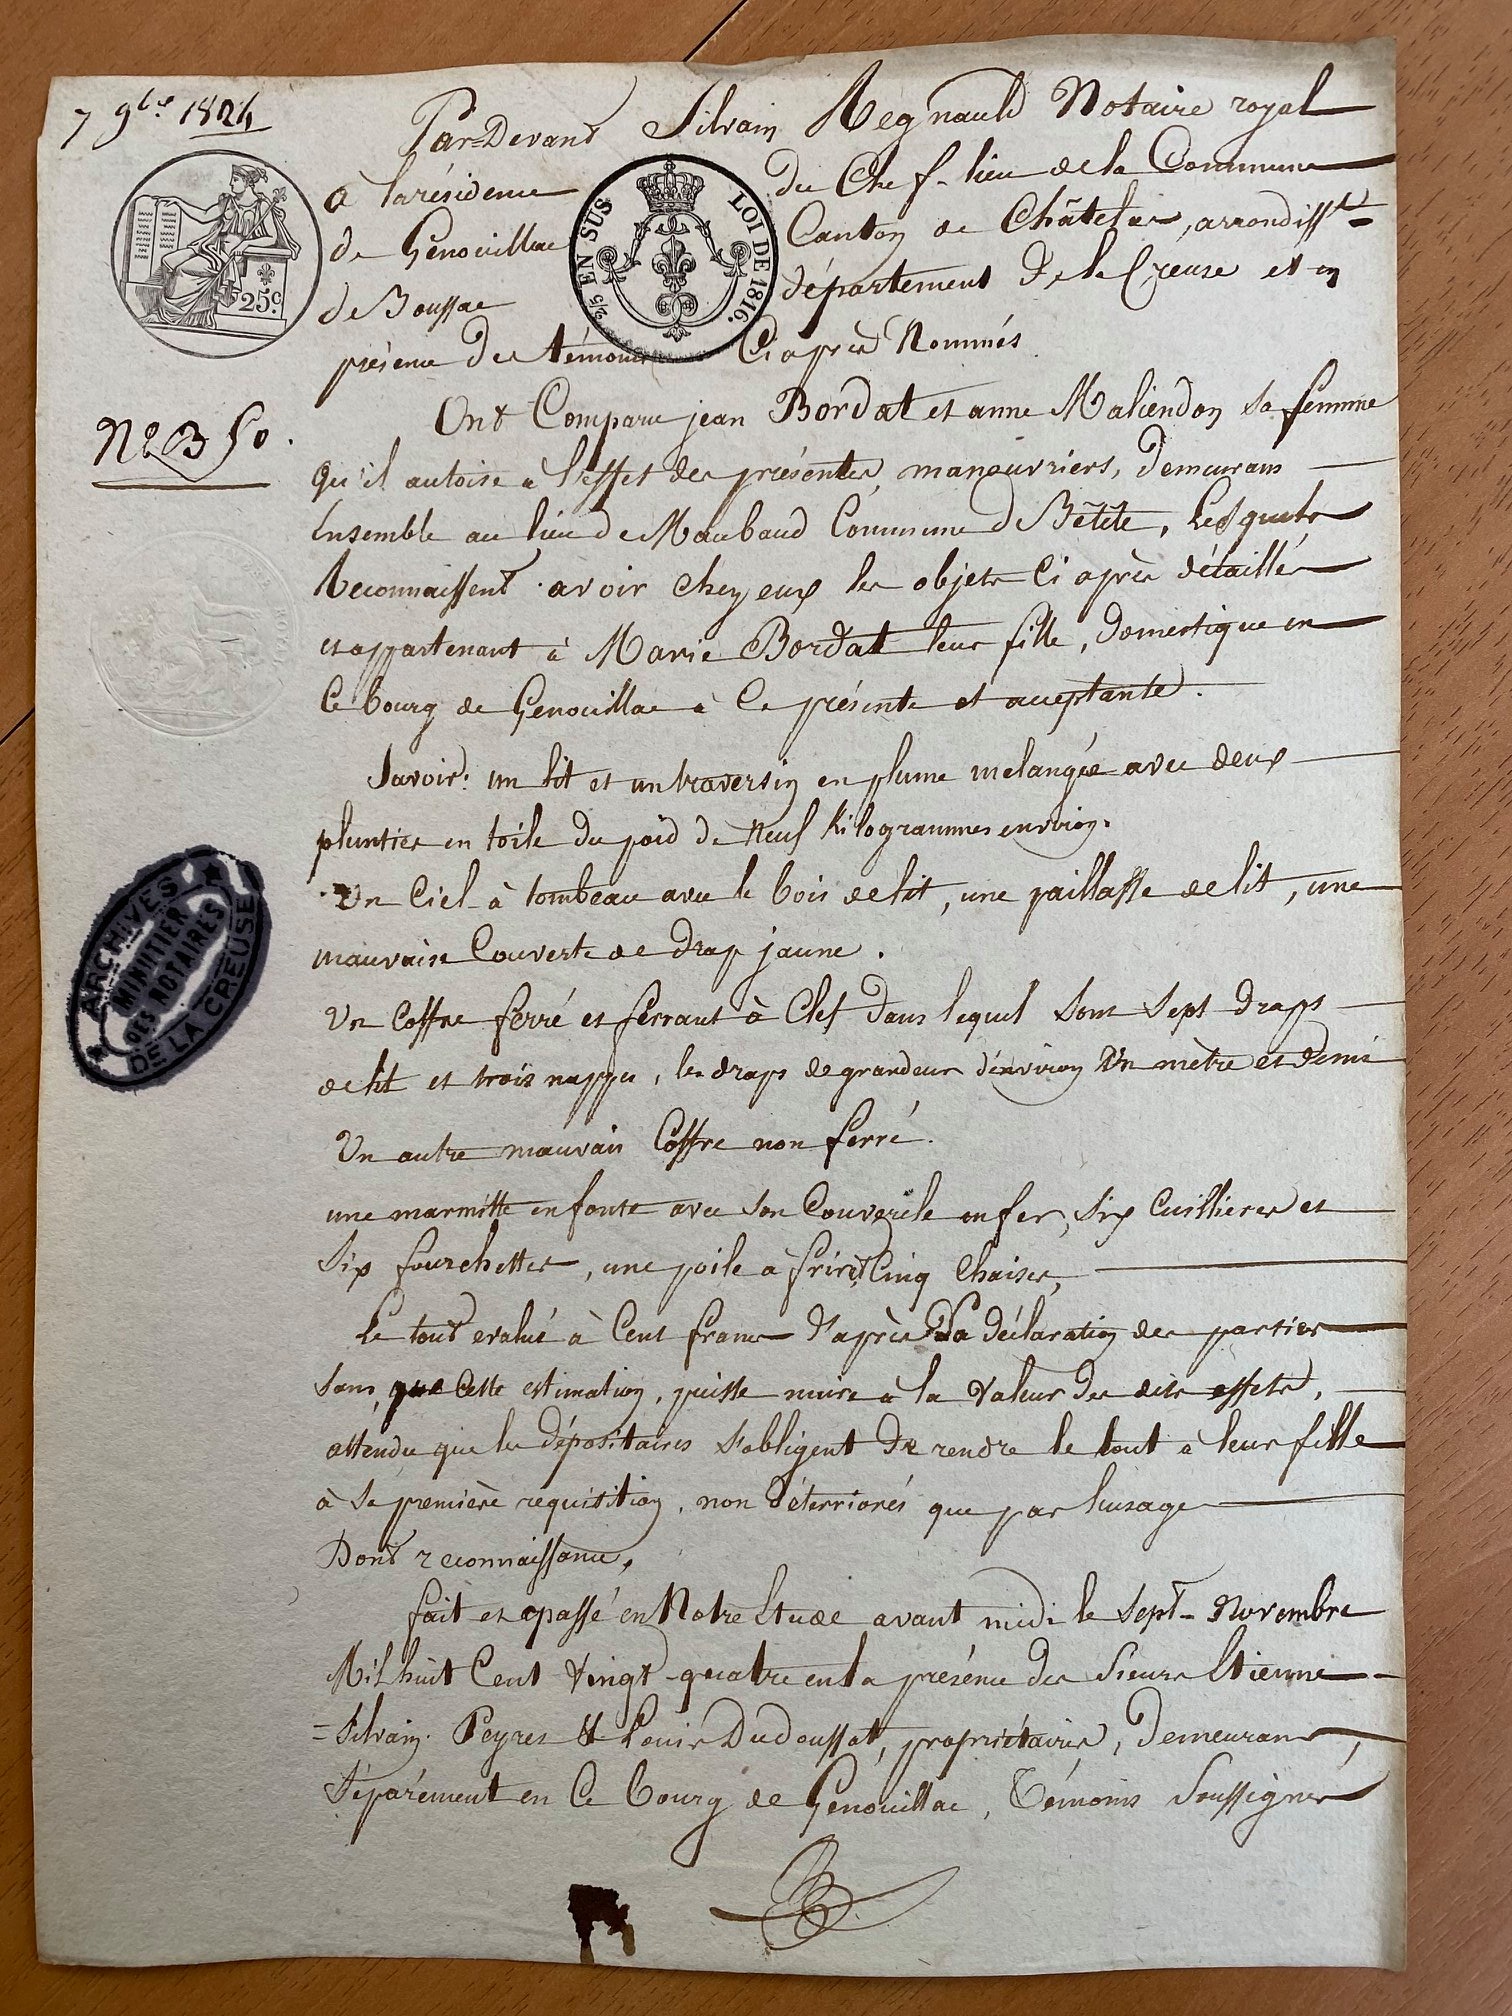 7 9bre 1824
Par-Devant Silvain Regnauld Notaire royal
à la résidence du Chef-lieu de la Commune
de Genouillac Canton de Châtelus, arrondisst
de Boussac département De la Creuse et en
présence des témoins Ci après Nommés
25c.
2/5 EN SUS LOI DE 1816.
No 350.
Ont Comparu jean Bordat et anne Maliendon sa femme
qu'il autoise à l'effet des présentes, manouvriers, Demeurans
Ensemble au lieu de Maubaud Commune de Bétête, Lesquels
Reconnaissent avoir chez eux les objets Ci après détaillés
et appartenant à Marie Bordat leur fille, domestique en
Ce bourg de Genouillac à Ce présente et acceptante.
Savoir: un lit et un traversin en plume melangée avec deux
en toile du poid de Neuf Kilogrammes environ.
Un Ciel à tombeau avec le bois de lit, une paillasse de lit, une
mauvaise Couverte de drap jaune.
Un Coffre ferré et ferrant à Clef dans lequel Sont Sept draps
de lit et trois nappes, les draps de grandeur d'environ Un mètre et Demi
Un autre mauvais Coffre non ferré.
une marmitte en fonte avec son Couvercle en fer, Six Cuillieres et
Six fourchettes, une poile à frire, Cinq Chaises,
Le tout evalué à Cent francs d'après la déclaration des parties
sans que Cette estimation, puisse nuire à la Valeur des dits effets,
attendu que les dépositaires s'obligent De rendre le tout à leur fille
à Sa première requisition, non déterriorés que par l'usage
Dont reconnaissance.
fait et passé en Notre Etude avant midi le Sept Novembre
Mil huit Cent Vingt-quatre en la présence des Sieurs Etienne
=Silvain Peyres & Louis Dudoussat, propriétaires, Demeurans,
Séparément en Ce bourg de Genouillac, Témoins Soussignés
ARCHIVES
MINUTIER
DES NOTAIRES
DE LA CREUSE